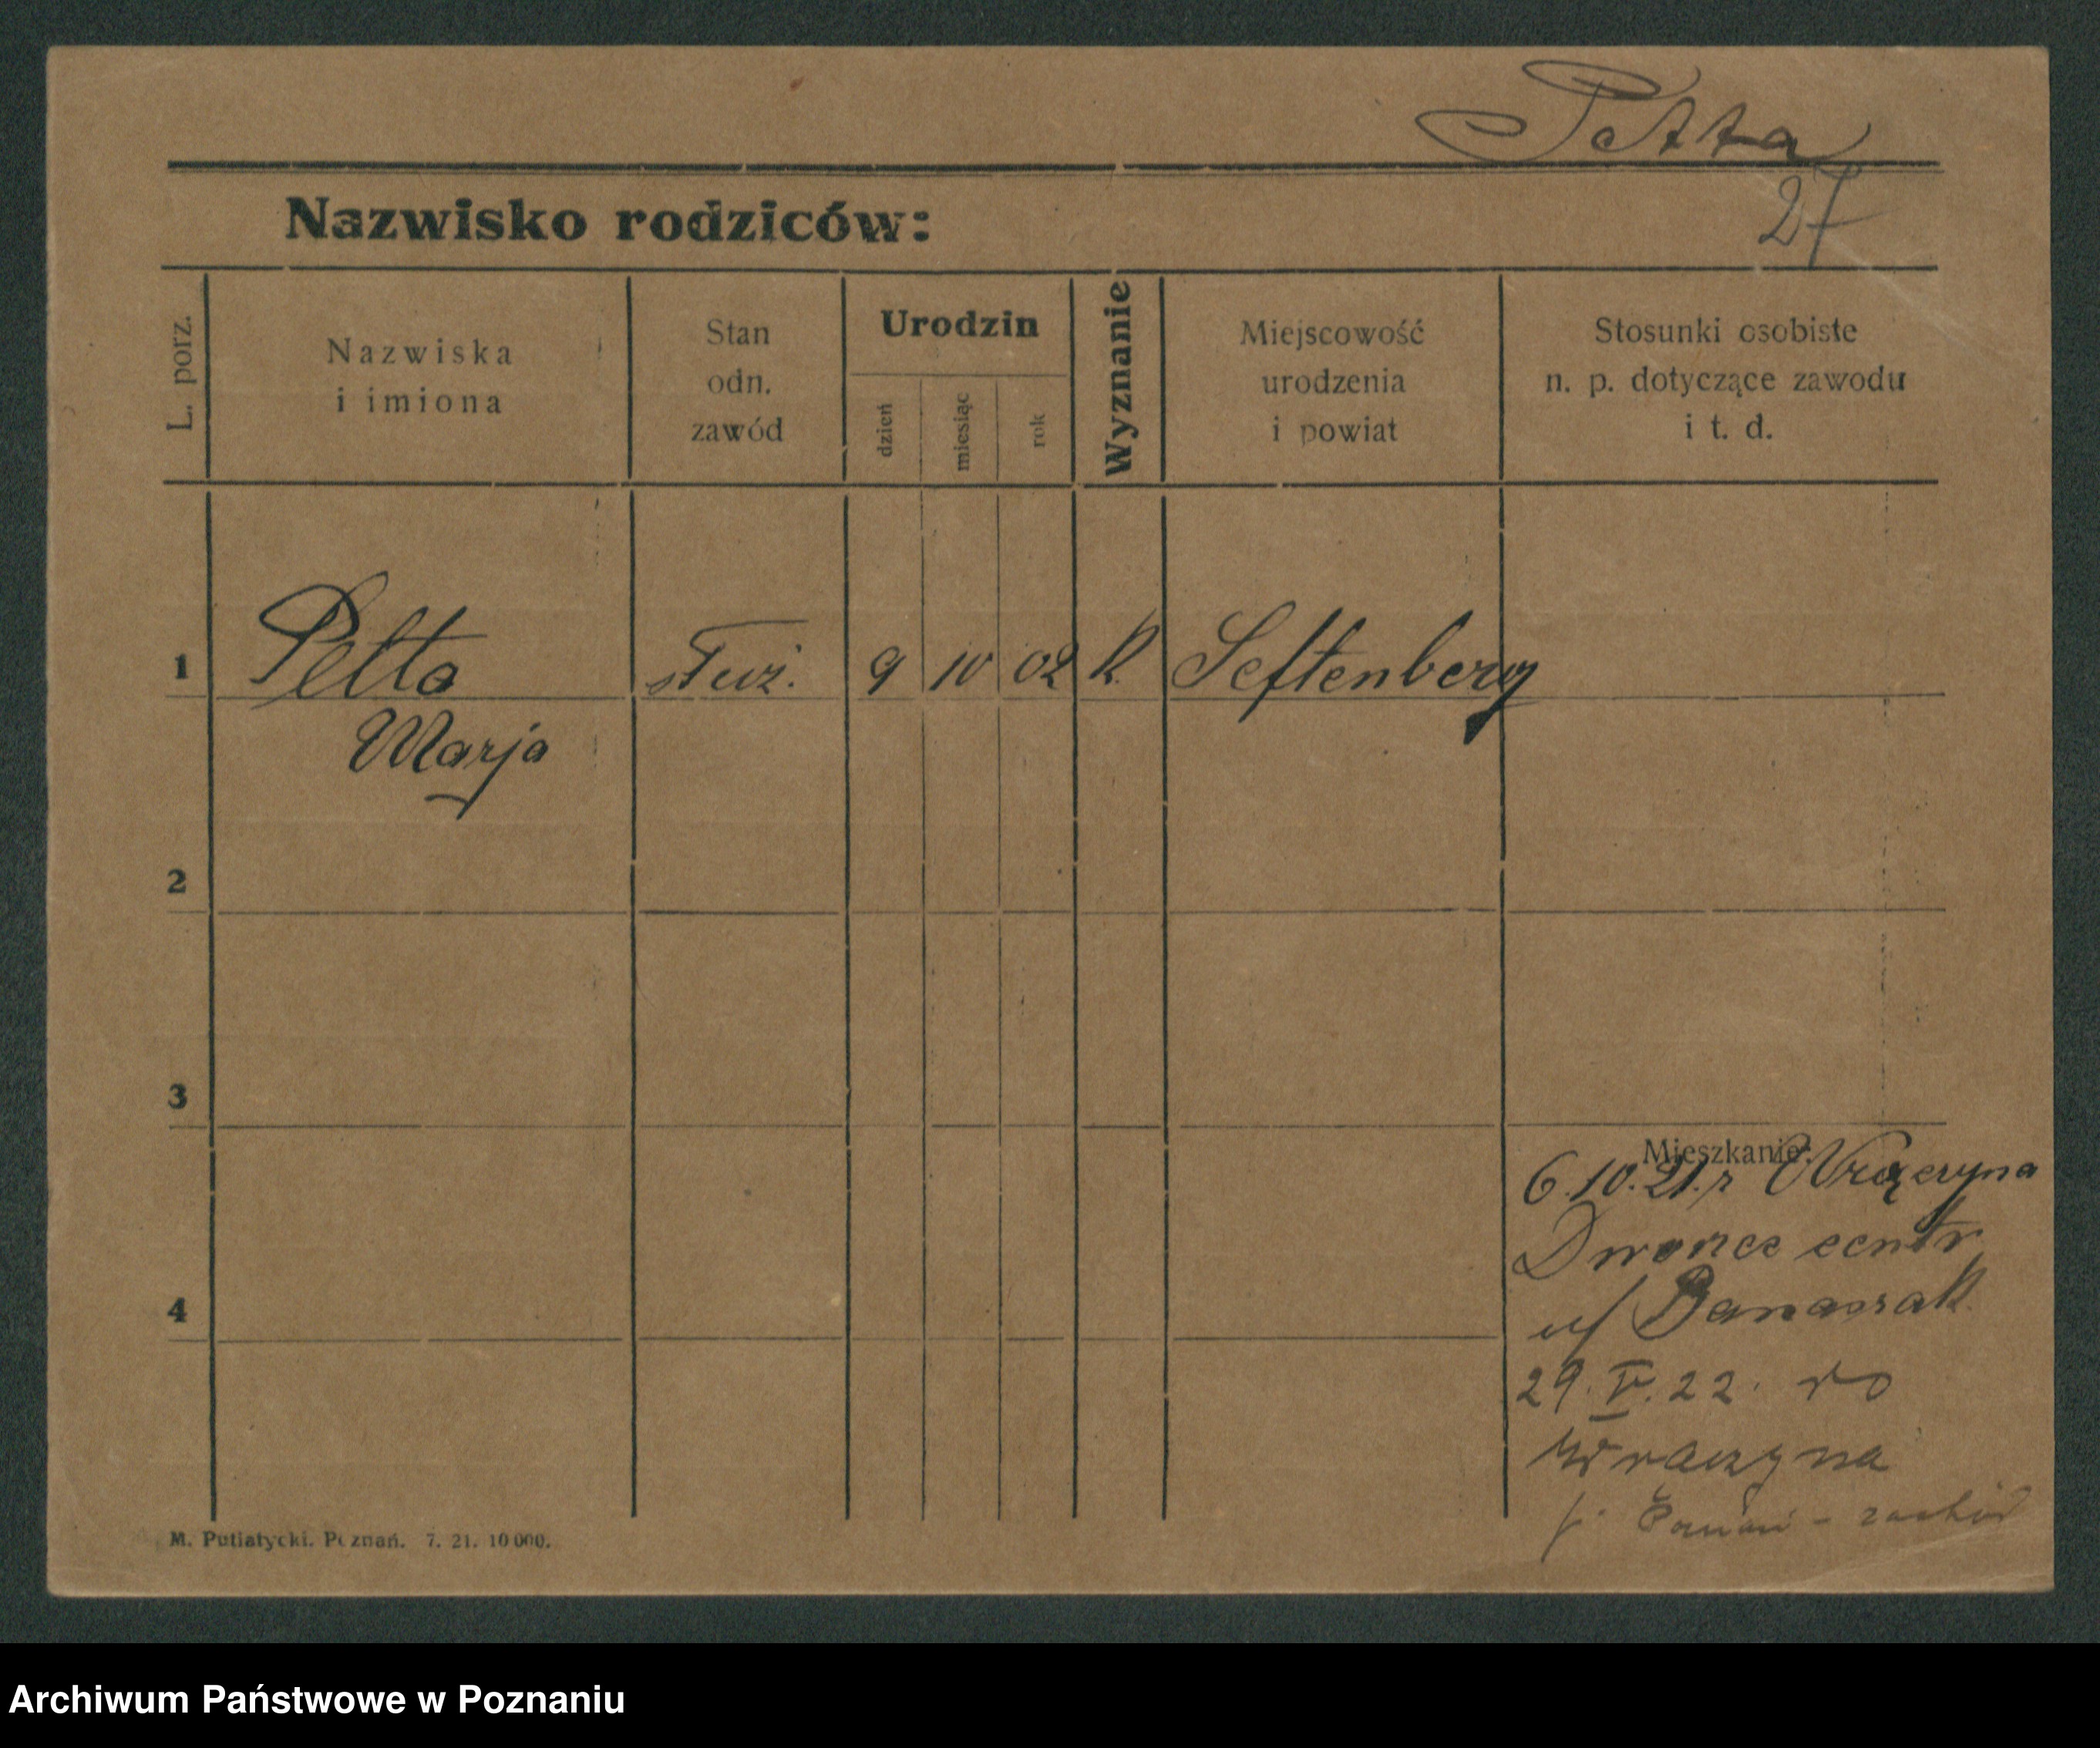 Petta
27
Nazwisko rodziców:
L. porz.
Nazwiska
i imiona
Stan
odn.
zawód
Urodzin
dzień
miesiąc
rok
Wyznanie
Miejscowość
urodzenia
i powiat
Stosunki osobiste
n. p. dotyczące zawodu
i t. d.
1 Petta służ. 9 10 02 k. Seftenberg
Marja
2
3
4
Mieszkanie:
6.10.21.r
Dworzec centr
u/ Banaszak
29.V.22. do
p. Poznań - zachód
M. Putiatycki. Poznań. 7. 21. 10 000.
Archiwum Państwowe w Poznaniu